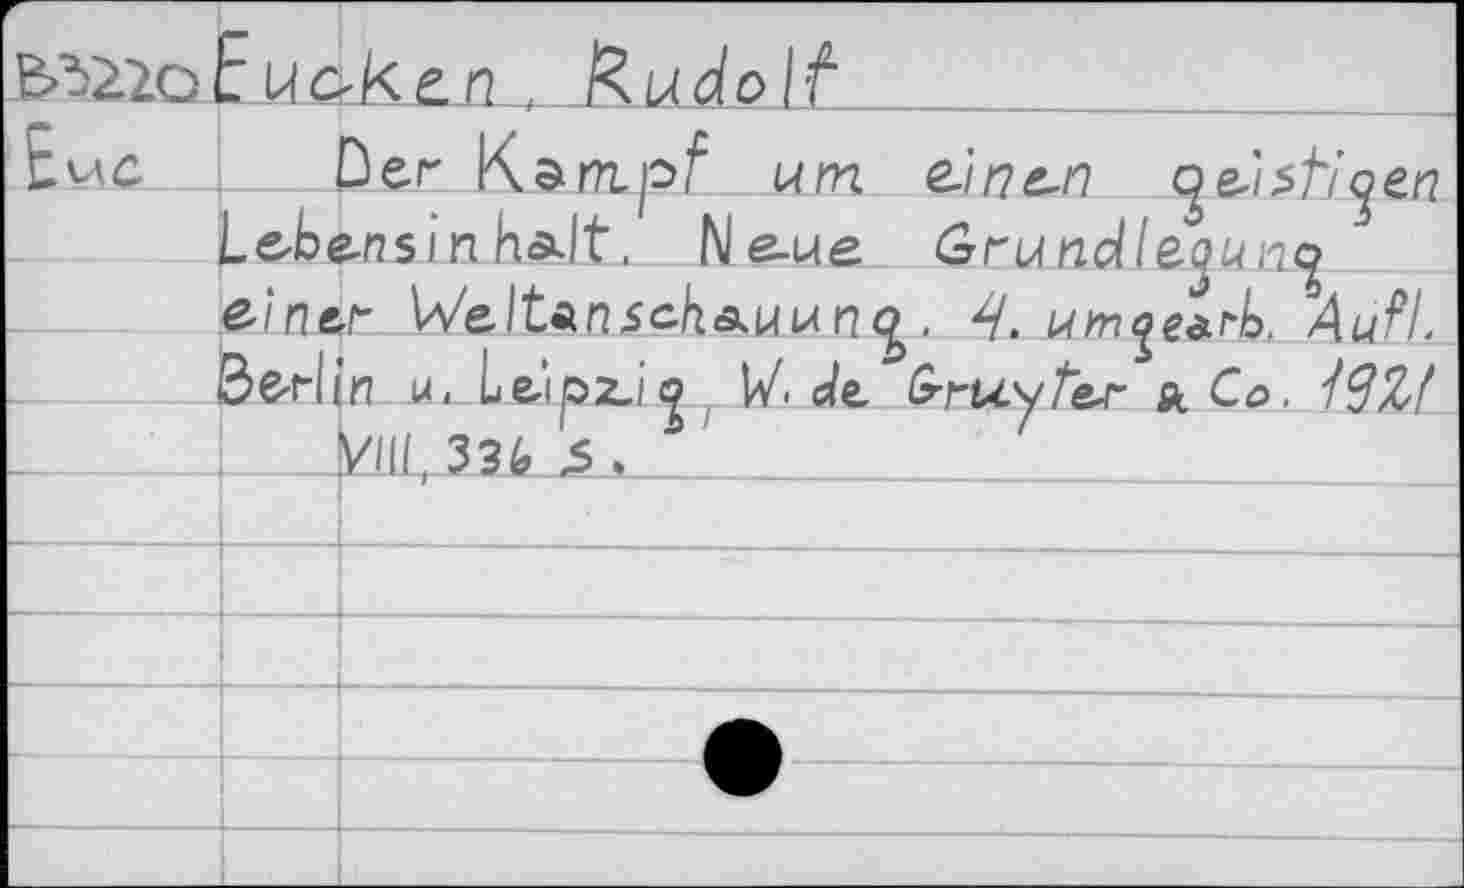 B3220 Eucken, Rudolf
Euc Der Kampf um einen geistigen
Lebensinhalt. Neue Grundlegung
einer Weltanschauung. 4. umgearb. Aufl.
Berlin u. Leipzig, W. de Gruyter & Co. 1921
VIII, 336 S.